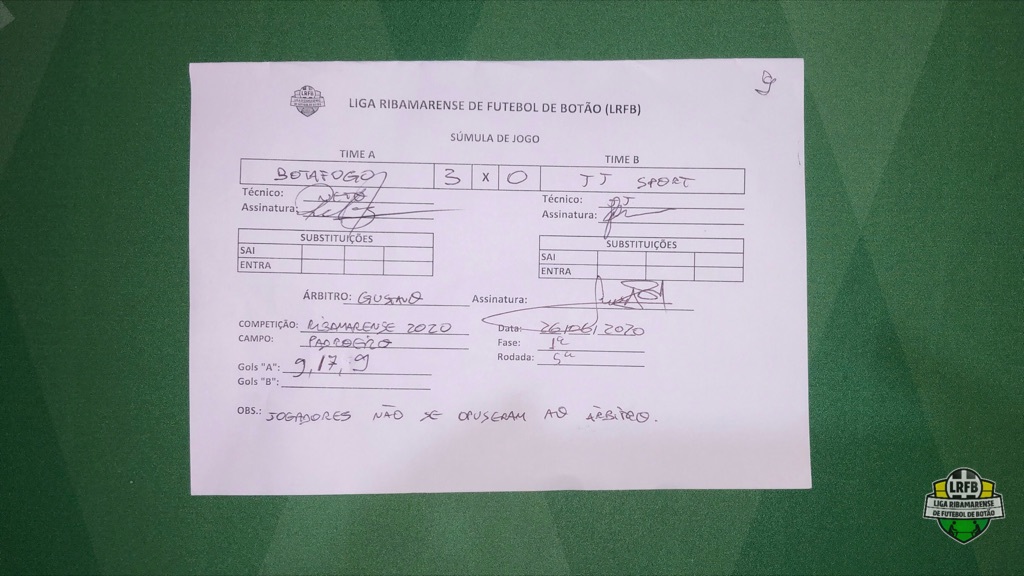 9
LRFB
LIGA RIBAMARENSE DE FUTEBOL DE BOTÃO (LRFB)
SÚMULA DE JOGO
TIME A TIME B
BOTAFOGO 3 X 0 JJ SPORT
Técnico: NETO Técnico: JJ
Assinatura: Assinatura:
SUBSTITUIÇÕES SUBSTITUIÇÕES
SAI SAI
ENTRA ENTRA
ÁRBITRO: GUSTAVO Assinatura:
COMPETIÇÃO: RIBAMARENSE 2020 Data: 26/06/2020
CAMPO: PADROEIRO Fase: 1ª
Rodada: 5ª
Gols "A": 9, 17, 9
Gols "B":
OBS.: JOGADORES NÃO SE OPUSERAM AO ÁRBITRO.
LRFB
LIGA RIBAMARENSE
DE FUTEBOL DE BOTÃO